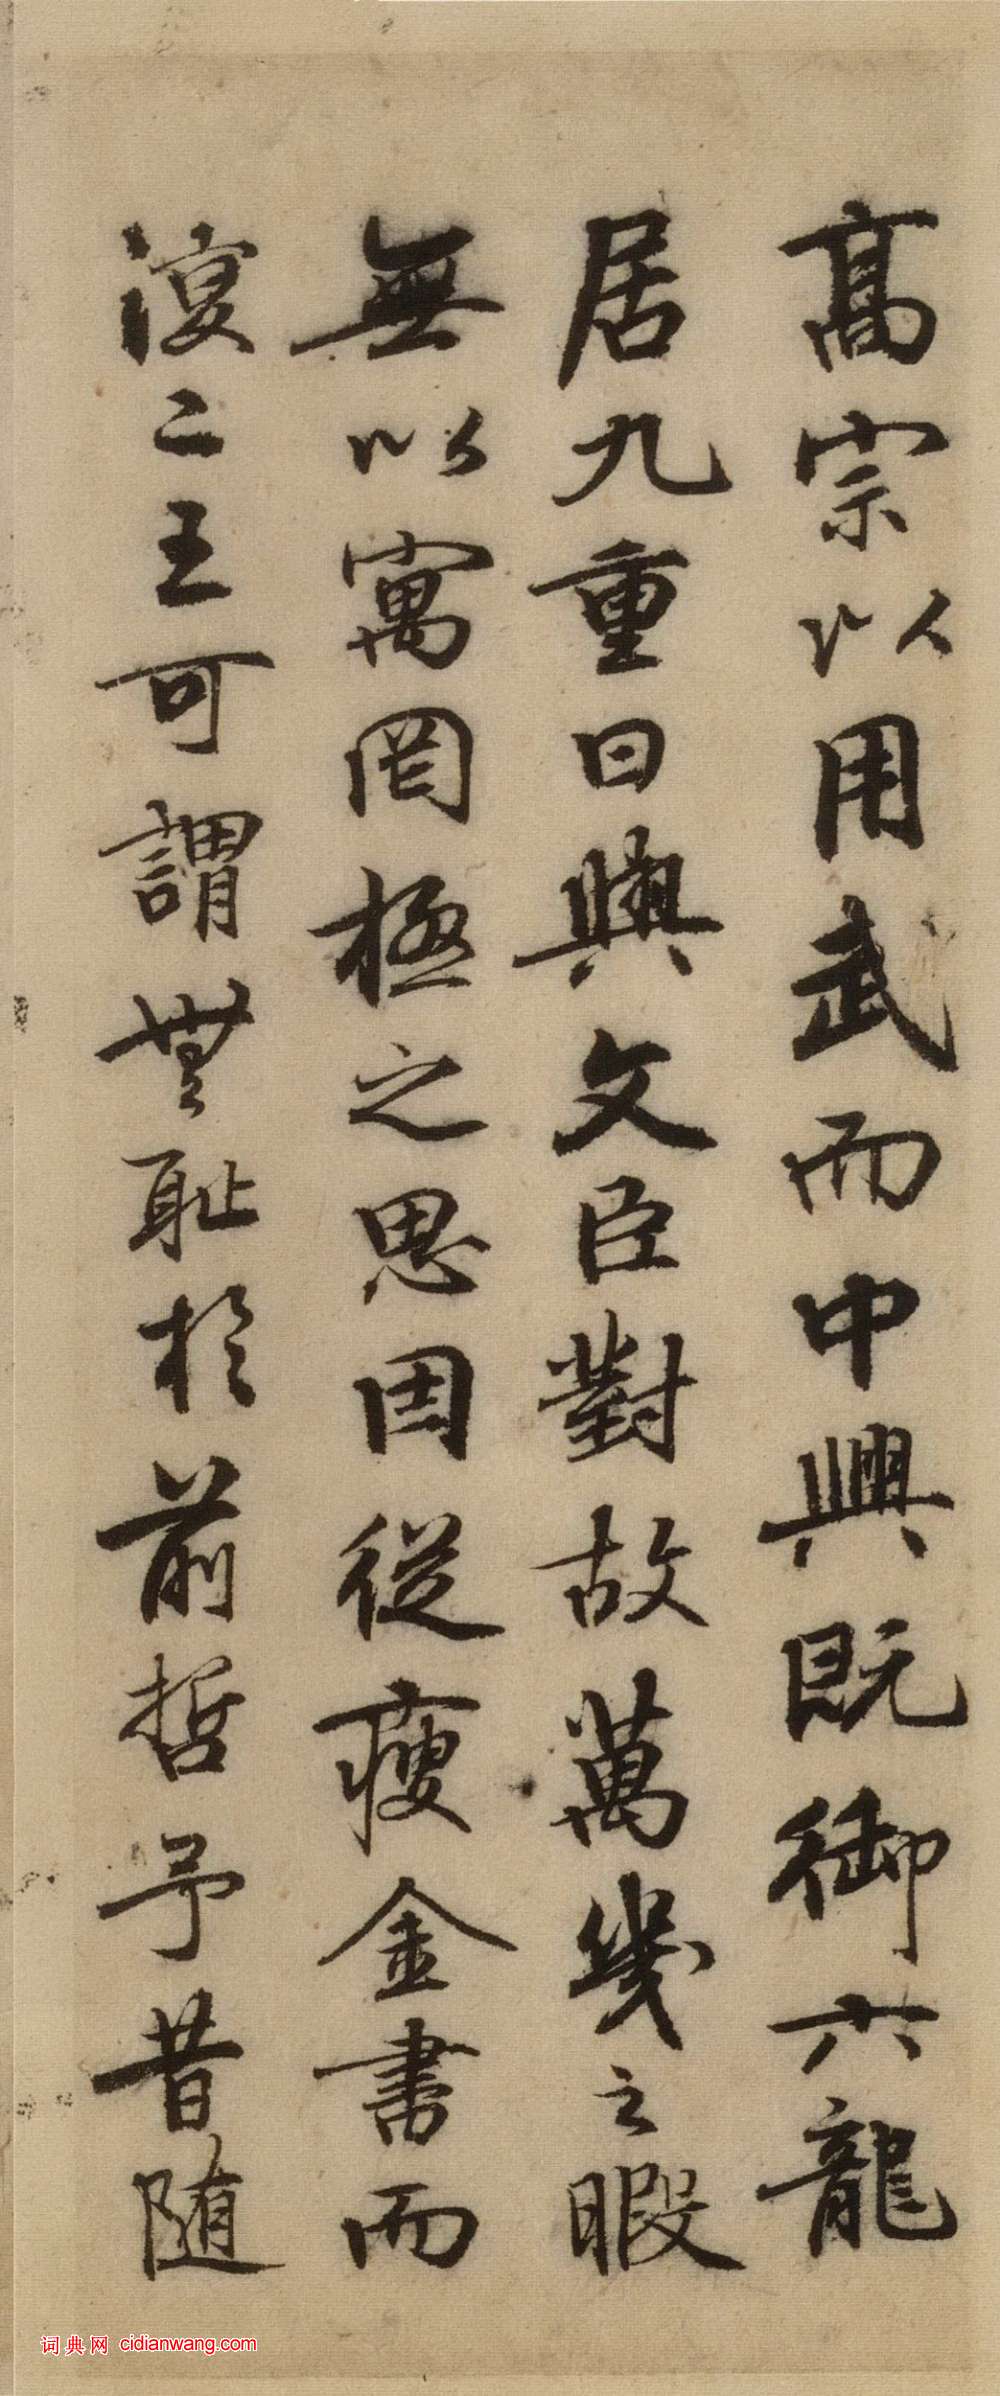 高宗以用武而中興既御六龍
居九重日與文臣對故萬幾之暇
無以寓罔極之思因從瘦金書而
復二王可謂無恥於前哲予昔隨
词典网 cidianwang.com